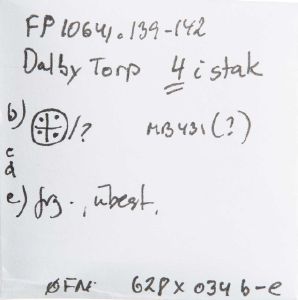 FP 10641.139-142
Dalby Torp 4 i stak
b) /? MB431(?)
c
d
e) frg., ubest.
ØFN: 628 x 034 b-e